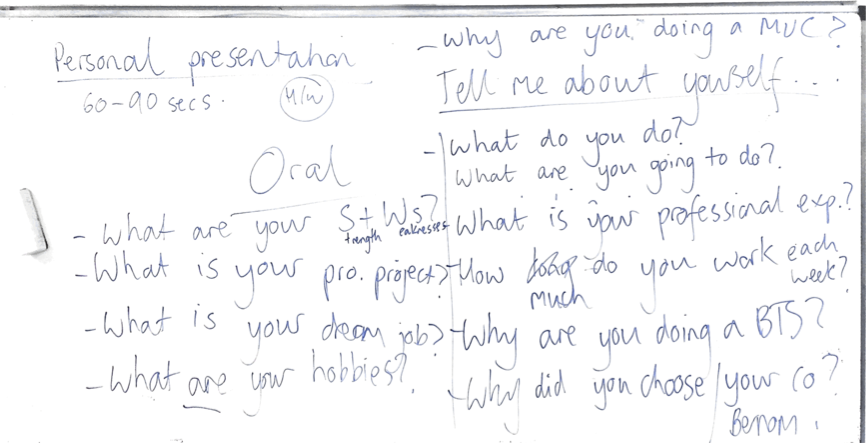 Personal presentation
60-90 secs. H/W
Oral
- What are your S + Ws?
trength eaknesses
- What is your pro. project?
- What is your dream job?
- What are your hobbies?
- Why are you doing a MUC?
Tell me about yourself...
- What do you do?
What are you going to do?
- What is your professional exp.?
- How long do you work each
much week?
- Why are you doing a BTS?
- Why did you choose / your co?